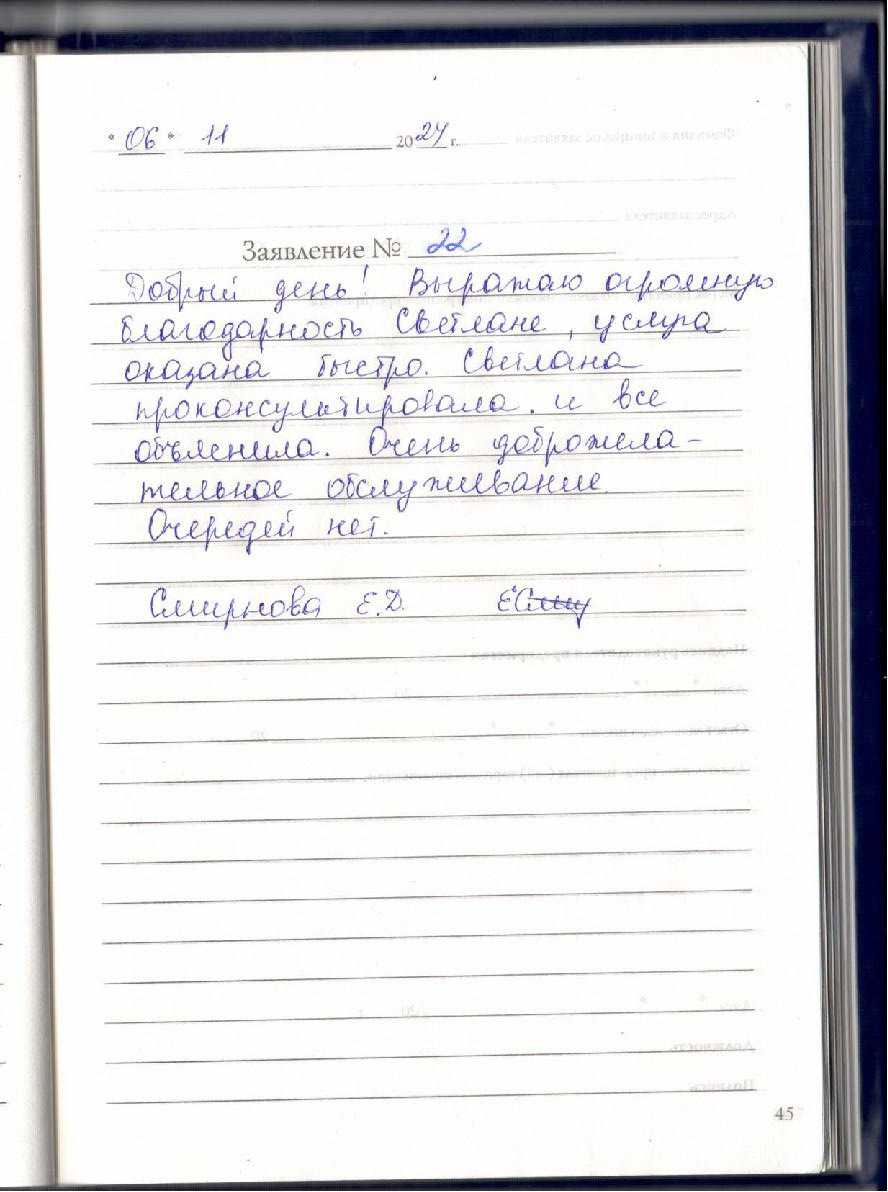 "06" 11 2024 г.
Заявление № 22
Добрый день! Выражаю огромную
благодарность Светлане, услуга
оказана быстро. Светлана
проконсультировала и все
объяснила. Очень доброжела-
тельное обслуживание
Очередей нет.
Смирнова Е.Д.
45